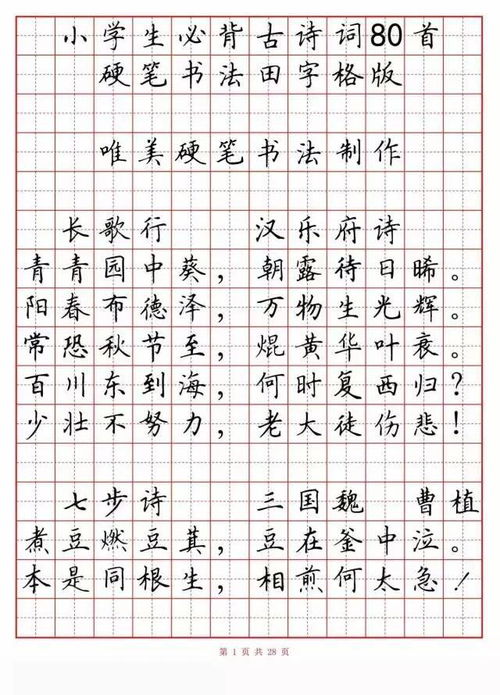 小学生必背古诗词80首
硬笔书法田字格版
唯美硬笔书法制作
长歌行 汉乐府诗
青青园中葵，朝露待日晞。
阳春布德泽，万物生光辉。
常恐秋节至，焜黄华叶衰。
百川东到海，何时复西归？
少壮不努力，老大徒伤悲！
七步诗 三国魏 曹植
煮豆燃豆萁，豆在釜中泣。
本是同根生，相煎何太急！
第 1 页 共 28 页